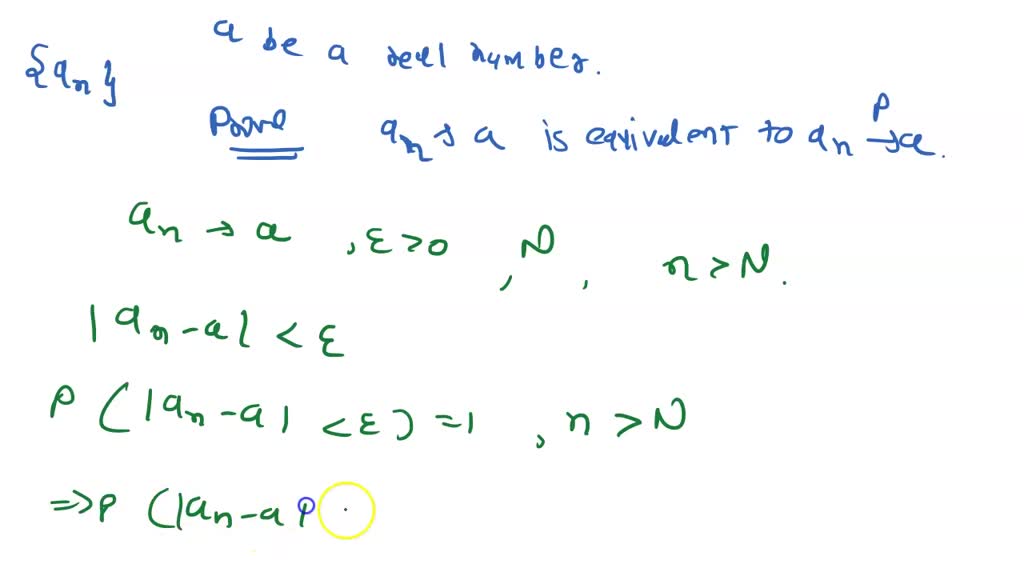 a be a real number.
{aₙ}
Prove aₙ → a is equivalent to aₙ →ᴾ a.
aₙ → a , ε > 0 , N , n > N.
|aₙ - a| < ε
P (|aₙ - a| < ε) = 1 , n > N
=> P (|aₙ - a|